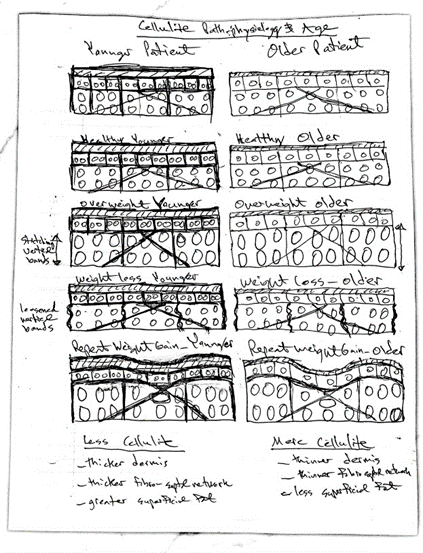 Cellulite Pathophysiology & Age
Younger Patient
Older Patient
Healthy Younger
Healthy Older
Overweight Younger
Overweight Older
stretching
bands
Weight loss Younger
Weight Loss - Older
loosened
vertical
bands
Repeat Weight Gain - Younger
Repeat Weight Gain - Older
Less Cellulite
- thicker dermis
- thicker fibro-septal network
- greater superficial fat
More Cellulite
- thinner dermis
- thinner fibro septal network
- less superficial fat